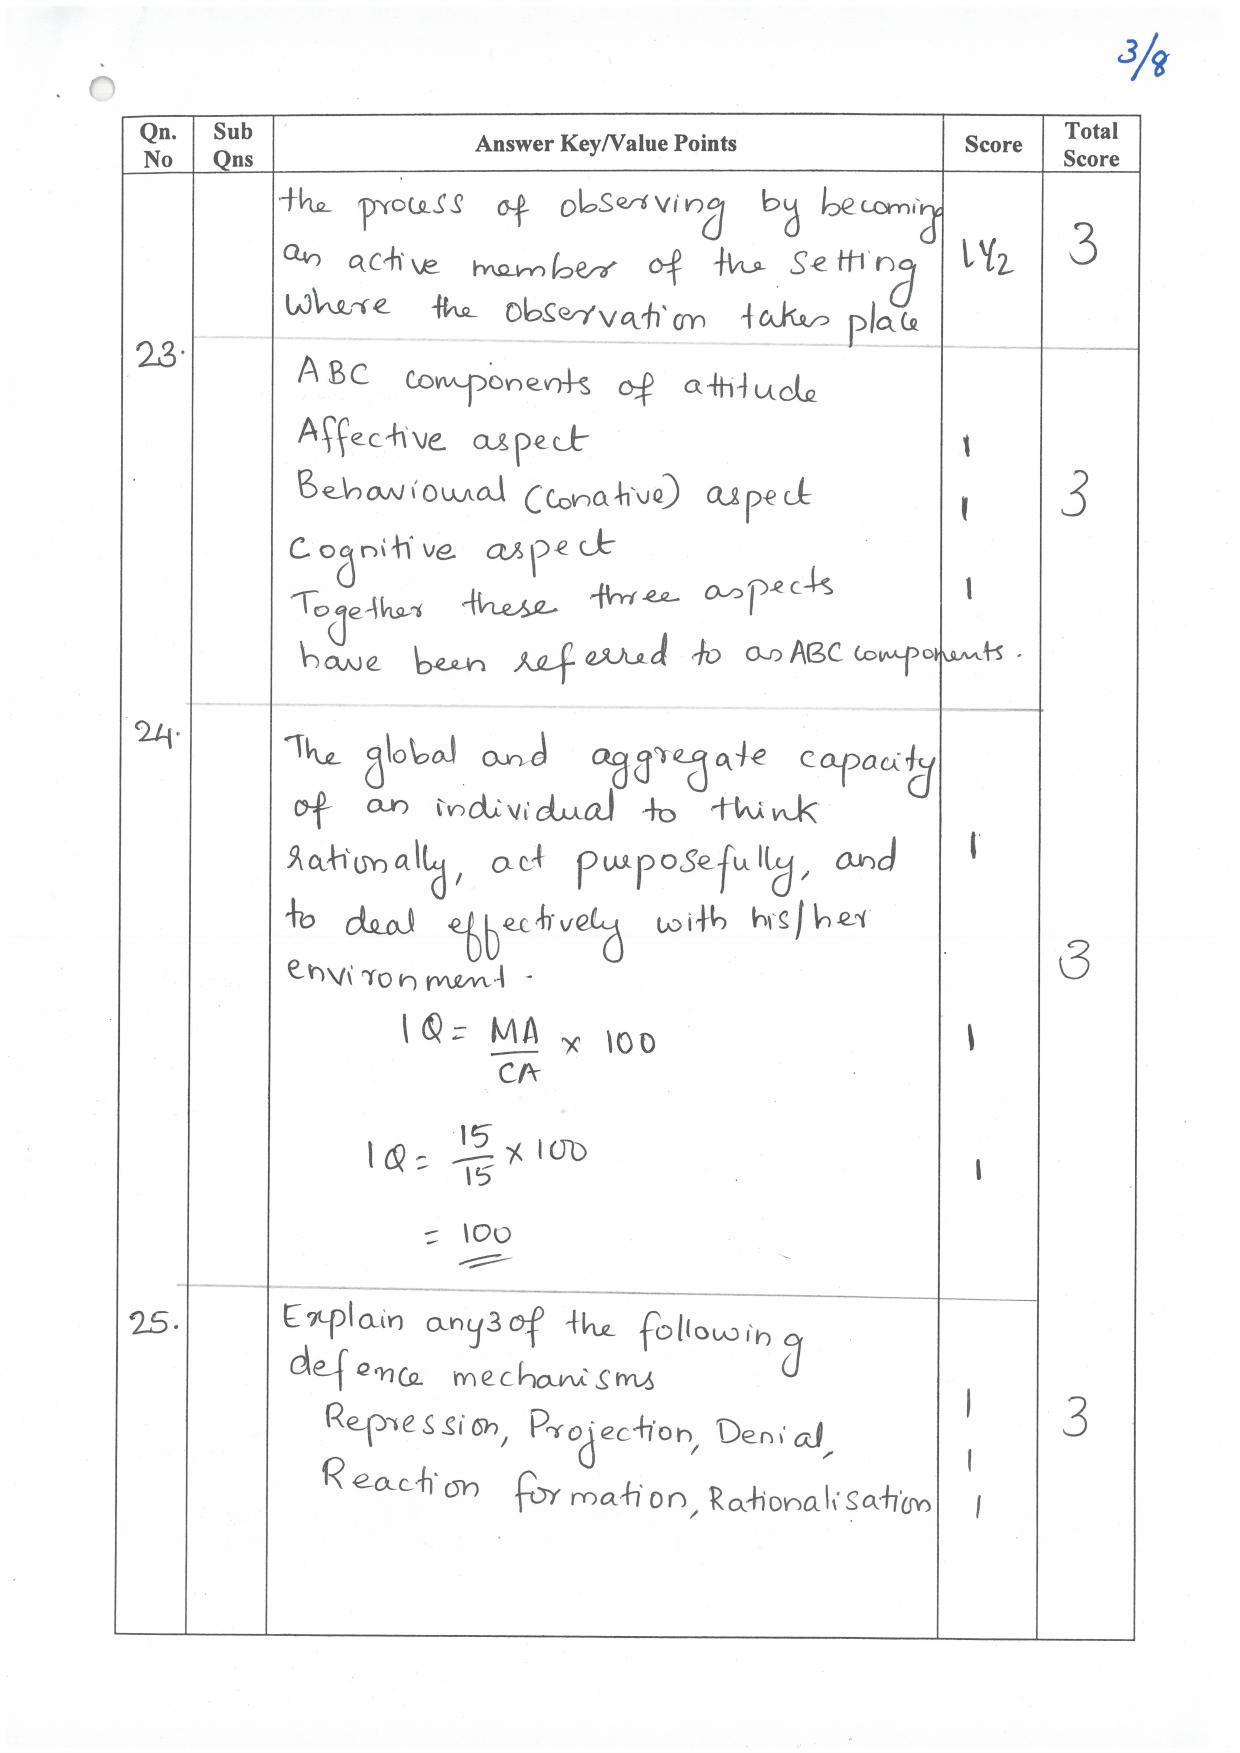 3/8
Qn. No Sub Qns Answer Key/Value Points Score Total Score
the process of observing by becoming
an active member of the setting 1 1/2 3
where the observation takes place
23.
ABC components of attitude
Affective aspect 1
Behavioural (conative) aspect 1 3
Cognitive aspect
Together these three aspects 1
have been referred to as ABC components.
24.
The global and aggregate capacity
of an individual to think
rationally, act purposefully, and 1
to deal effectively with his/her
environment. 3
IQ = MA/CA × 100 1
IQ = 15/15 × 100 1
= 100
25. Explain any 3 of the following
defence mechanisms
Repression, Projection, Denial, 1 3
1
Reaction formation, Rationalisation 1